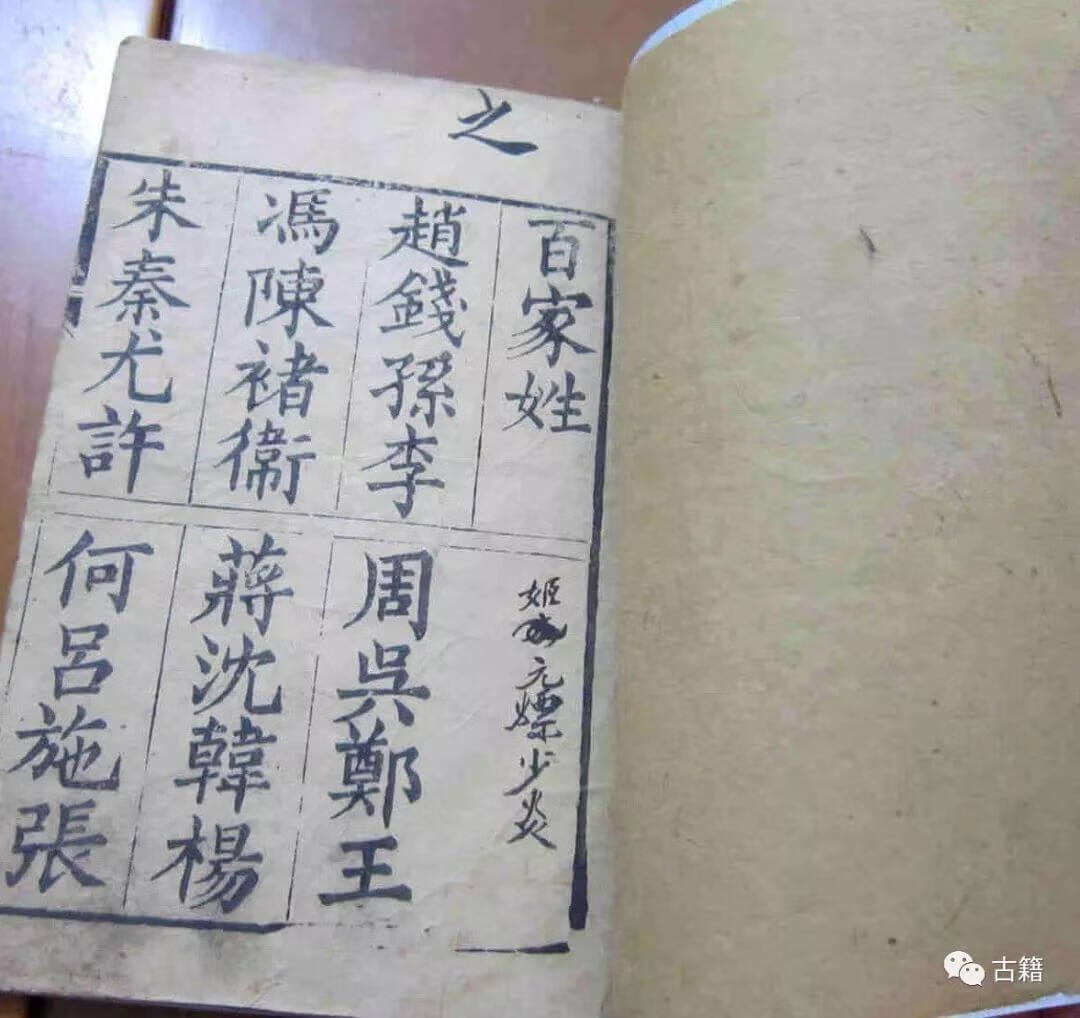 之
百家姓
趙錢孫李
馮陳褚衞
朱秦尤許
姬
元嫖少炎
周吳鄭王
蔣沈韓楊
何呂施張
古籍